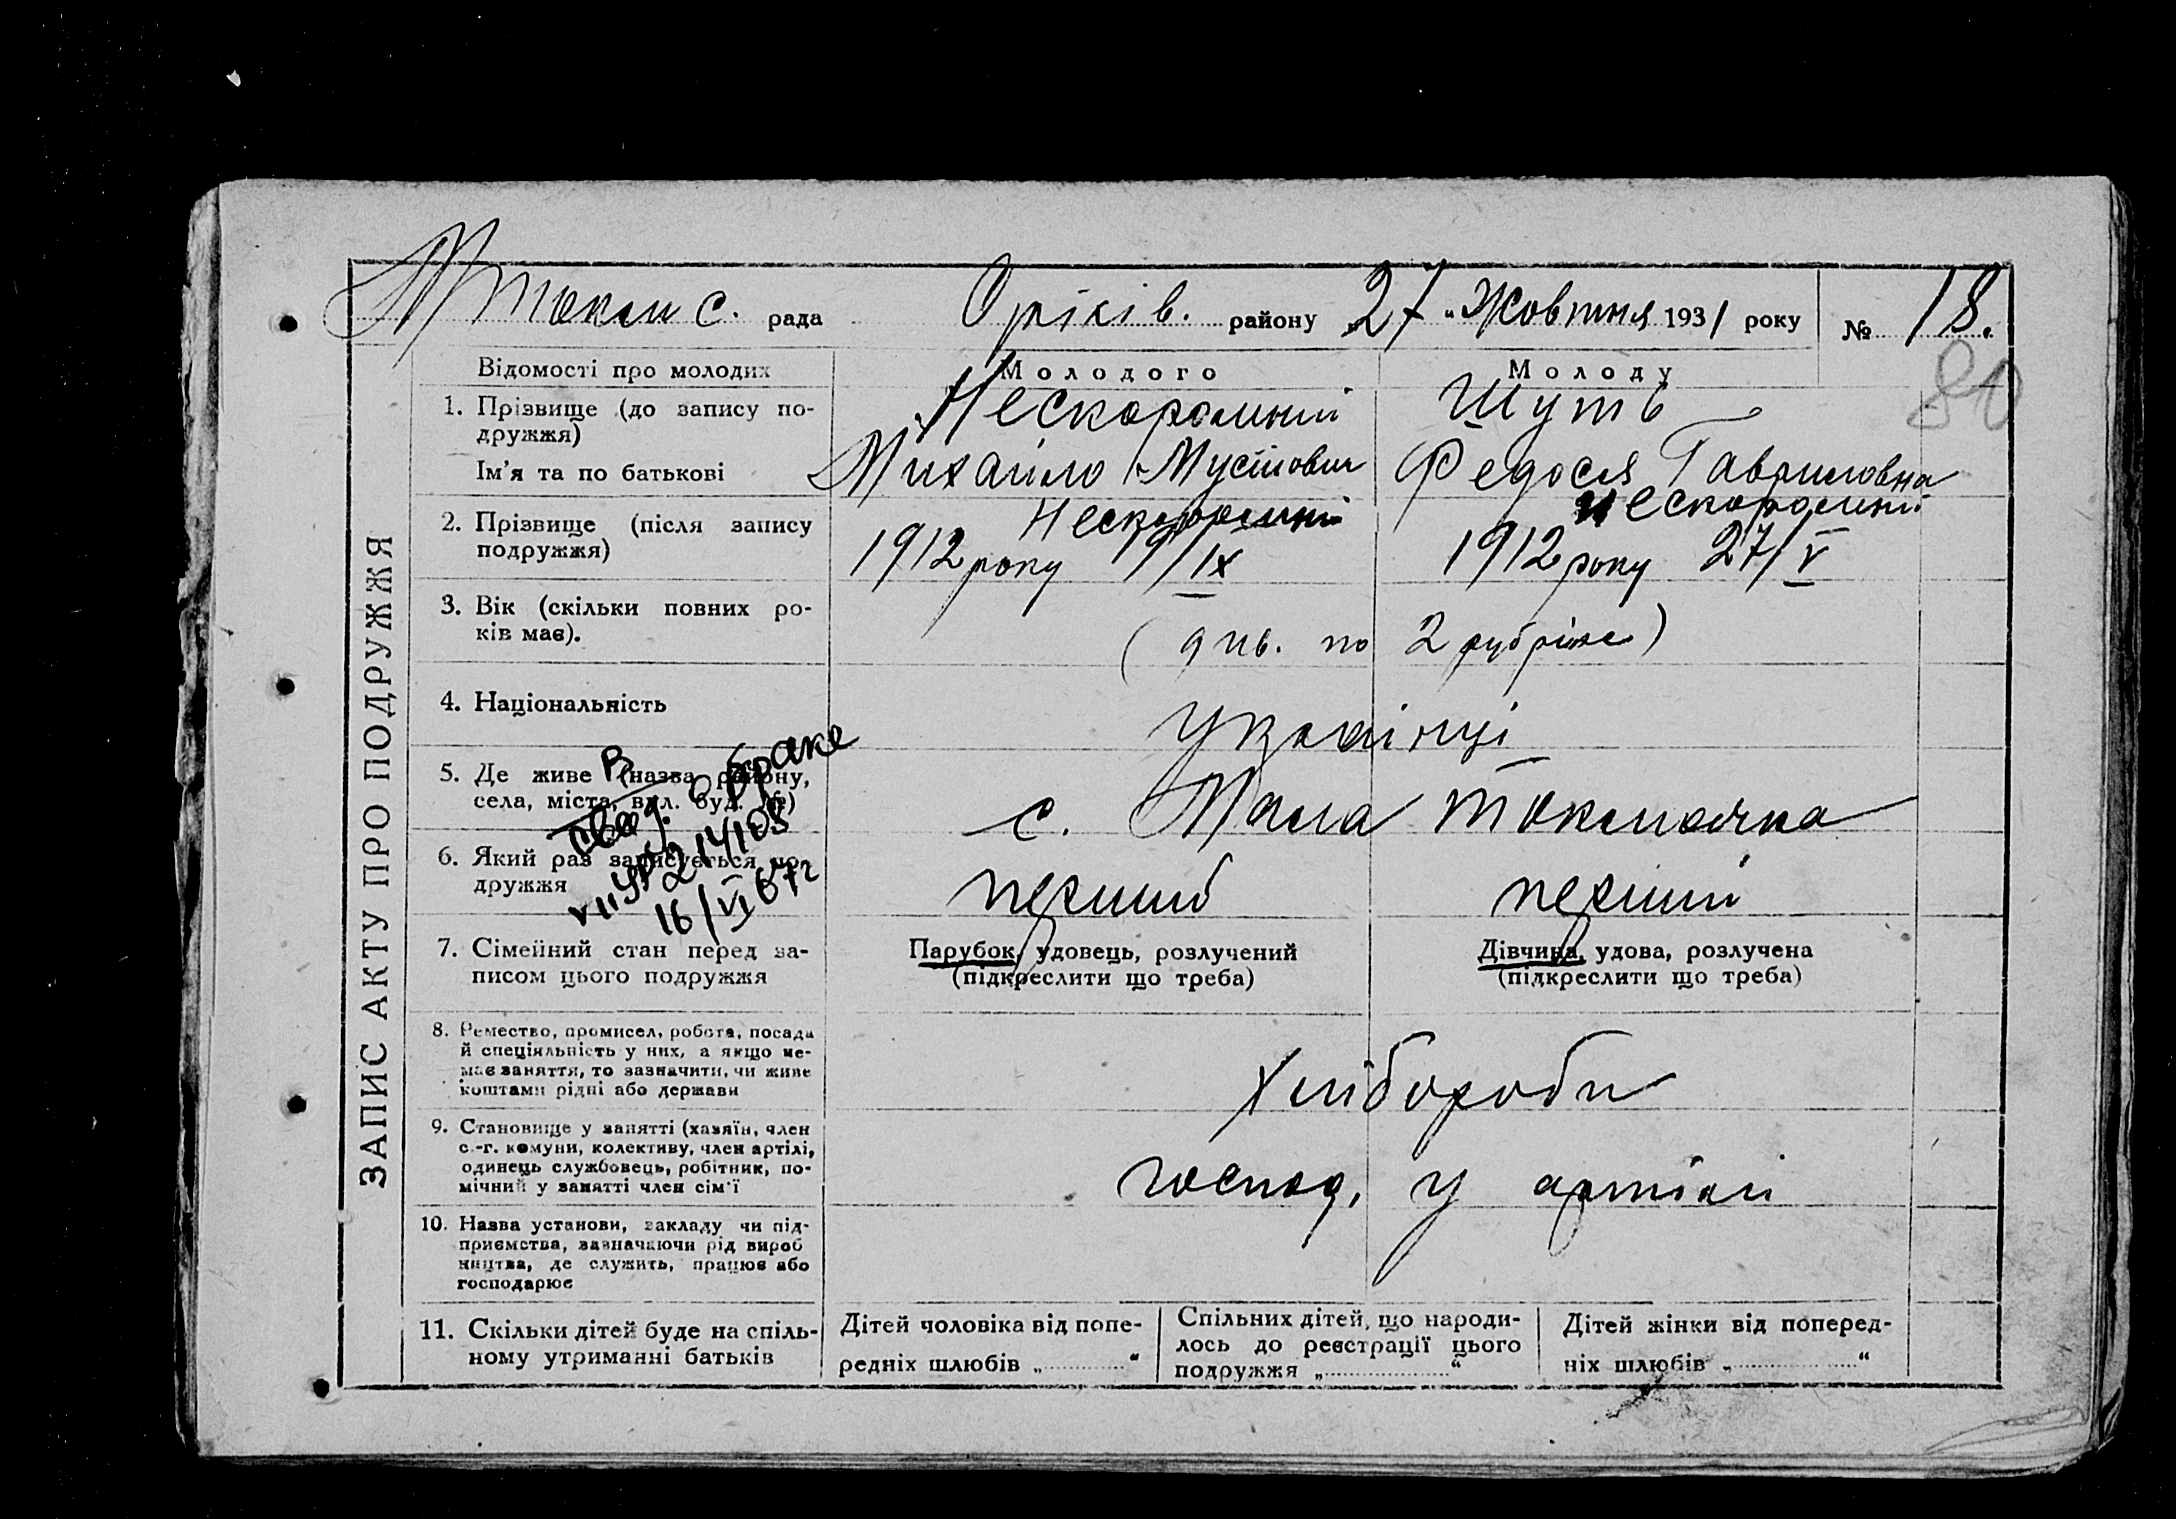 М Токмс. рада Оріків. району „27“ Жовтня 1931 року № 18.
80
ЗАПИС АКТУ ПРО ПОДРУЖЖЯ
Відомості про молодих Молодого Молоду
1. Прізвище (до запису по-
дружжя) Нескоромний Шуть
Ім'я та по батькові Михайло Федося Гавриловна
2. Прізвище (після запису Нескоромні Нескоромні
подружжя) 1912 року 9/IX 1912 року 27/V
3. Вік (скільки повних ро-
ків має). (див. по 2 рубріке)
4. Національність Українці
5. Де живе (назва району,
села, міста, вул. буд. №) с. Мала Токмачка
6. Який раз записується по-
дружжя перший перший
В
свид. о браке
УР 214105
16/VI 67г
7. Сімейний стан перед за- Парубок, удовець, розлучений Дівчина, удова, розлучена
писом цього подружжя (підкреслити що треба) (підкреслити що треба)
8. Ремество, промисел, робота, посада
й спеціяльність у них, а якщо не-
має заняття, то зазначити, чи живе
коштами рідні або держави Хлібороби
9. Становище у занятті (хазяїн, член
с.-г. комуни, колективу, член артілі,
одинець службовець, робітник, по-
мічний у занятті член сім'ї господ. у артілі
10. Назва установи, закладу чи під-
приємства, зазначаючи рід вироб
ництва, де служить, працює або
господарює
11. Скільки дітей буде на спіль-
ному утриманні батьків
Дітей чоловіка від попе-
редніх шлюбів „ “
Спільних дітей, що народи-
лось до реєстрації цього
подружжя „ “
Дітей жінки від поперед-
ніх шлюбів „ “